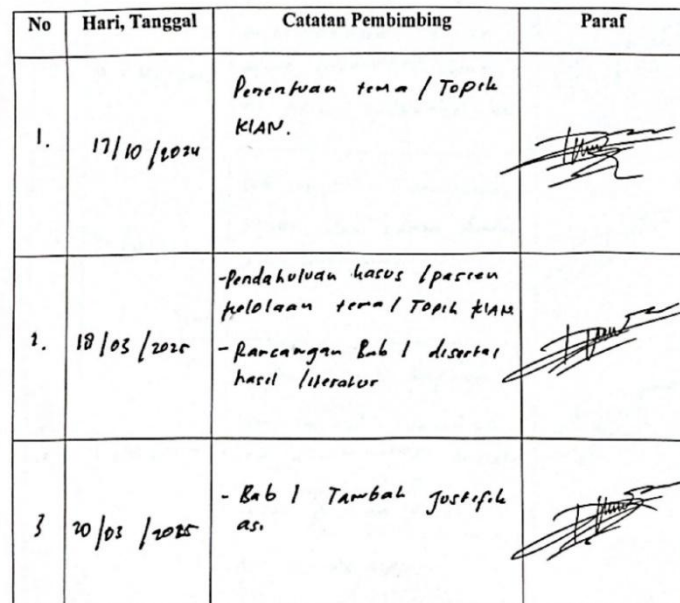 No Hari, Tanggal Catatan Pembimbing Paraf
1. 17/10/2024 Penentuan tema / Topik
KIAN.
2. 18/03/2025 -Pendahuluan kasus /pasien
kelolaan tema / Topik KIAN
- Rancangan Bab 1 disertai
hasil literatur
3 20/03/2025 - Bab 1 Tambah Justifik
asi